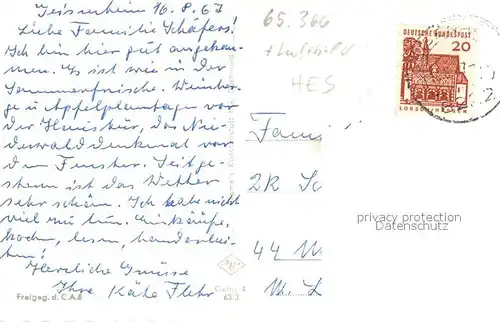 Geisenheim 16.8.67
Liebe Familie Schäfers!
Ich bin hier gut angekom-
men. Es ist wie in der
Sommerfrische. Weinber-
ge u. Apfelplantagen vor
der Haustür, das Nie-
derwalddenkmal vor
dem Fenster. Seitge-
stern ist das Wetter
sehr schön. Ich habe nicht
viel zu tun. Einkäufe,
kochen, lesen, handarbei-
ten!
Herzliche Grüsse
Ihre Käthe Flehr
Freigeg. d. C.A.B
65.366
+ Luftbild
HES
DEUTSCHE BUNDESPOST
20
LORSCH HESSEN
Fami
2R Sc
44 M
privacy protection
Datenschutz